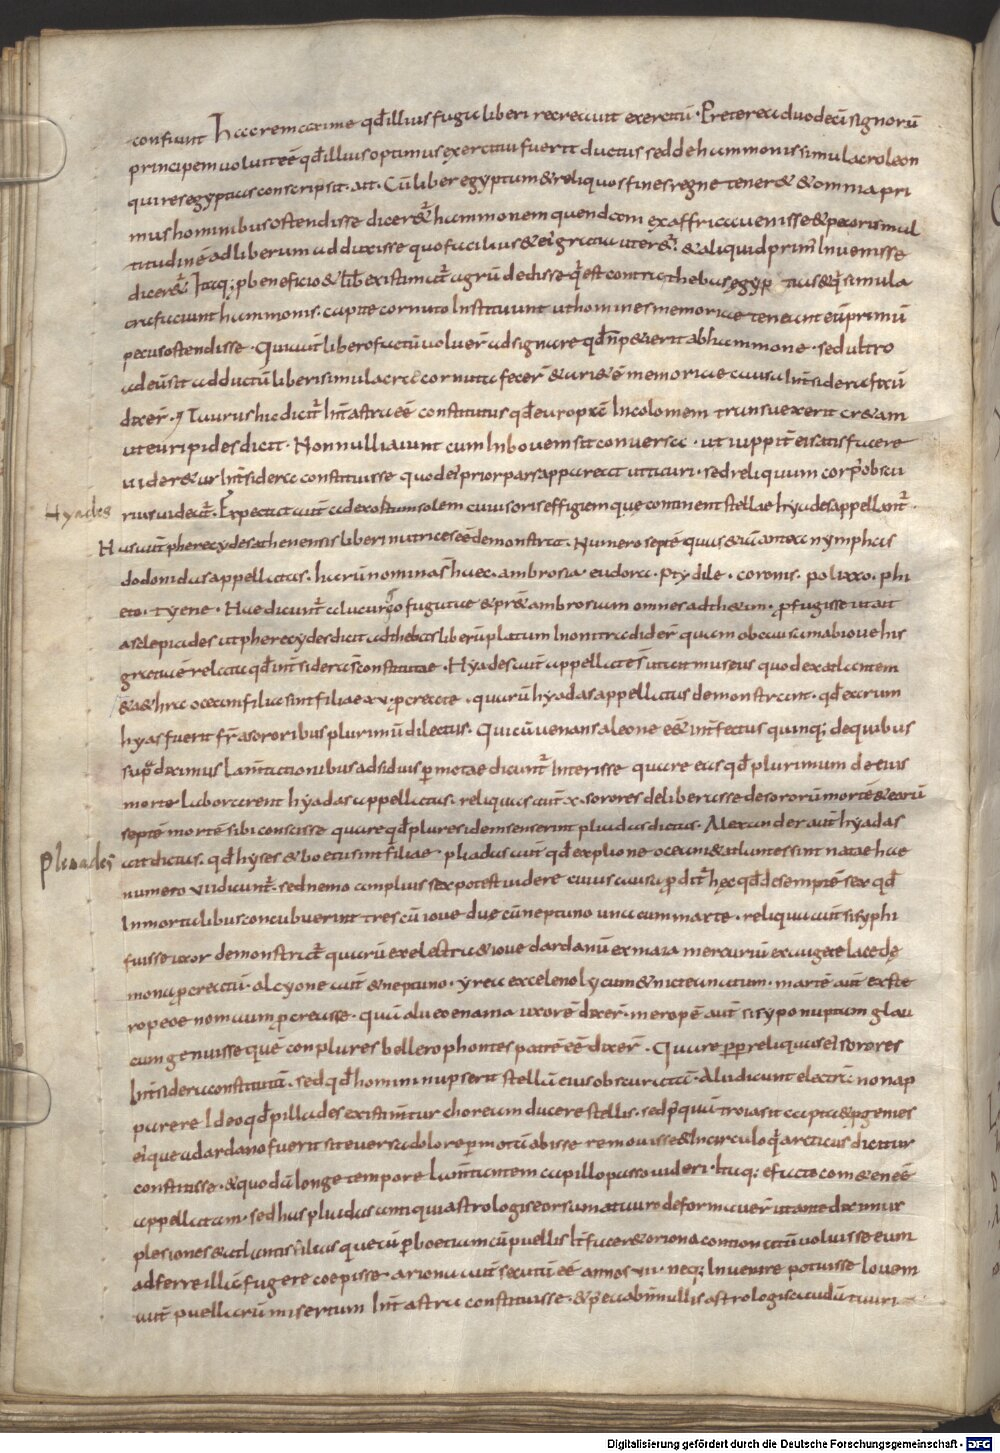 confiunt hac rem carime qđ illius fuga liberi recreauit exercitū. Preterea duodecī signorū
principem uoluit eē qđ illius optimus exercitui fuerit ductus sed de hammonis simulacro leon
qui res egyptias conscripsit. ait. Cū liber egyptum & reliquos fines regne tener& & omnia pri
mus hominibus ostendisse dicer&ur hammonem quendam ex affrica uenisse & pecoris mul
titudinē ad liberum adduxisse quo facilius & ei gratia uter&ur & aliquid primū Inuenisse
dicer&ur Itaq; p beneficio & libī existimatur agrū dedisse q̄ est contra thebas egyp tias & q̄ simula
cra faciunt hammonis. capite cornuto Instituunt ut homines memoriae teneant eū primū
pecus ostendisse. Qui aut libero factū uoluer adsignare qđ n̄ p&ierit ab hammone. sed ultro
ad eū sit adductū liberi simulacra cornuta fecer & ari&ē memoriae causa Int sidera fixū
dixer. Taurus hic dicit Int astra eē constitutus qđ europā Incolomem transuexerit cr&am
ut euripides dicit. Nonnulli aiunt cum In bouem sit conuersa. ut iuppiter ei satis facere
uider&ur Int sidera constituisse quod ei prior pars appareat ut tauri. sed reliquum corp obscu
rius uideat. Expectat aut ad exortum solem cuius oris effigiem que continent stellae hyades appellant.
Hyades
Has aut pherecydes athenensis liberi nutrices eē demonstrat. Numero septē quas & iā antea nymphas
dodonidas appellatas. harū nomina s haec. ambrosia eudora. ptydile. coronis. polixxo. phi
eto. tyene. Hae dicunt a lucurgo fugatae & pr& ambrosiam omnes ad th&im. pfugisse ut ait
asclepiades ut pherecydes dicit ad thebas liberū platum Inoni tradider quam ob causam ab ioue his
gratia ē relata qđ int sidera s constitutae. Hyades aut appellate s ut ait museus quod ex atlantem
& a&hra oceani filia sint filiae xv. pcreate. quarū hyadas appellatas demonstrant. qđ earum
hyas fuerit fr̄ a sororibus plurimū dilectus. Qui cū uenans a leone eēt intfectus quinq; de quibus
supra diximus Lamtationibus adsiduis pmotae dicunt Interisse quare eas qđ plurimum de eius
morte laborarent hyadas appellatas. reliquas aut .x. sorores deliberasse de sororū morte & earū
septē mortē sibi conscisse quare qđ plures idem senserint pliadas dictas. Alexander aut hyadas
ait dictas. qđ hyses & boetu sint filiae pliadas aut qđ ex plione oceani & atlantes sint natae hae
Pleiades
numero vii dicunt. sed nemo amplius sex potest uidere cuius causa p ditur hęc qđ de septē sex qđ
Inmortalibus concubuerint tres cū ioue due cū neptuno una cum marte. reliqua aut sisyphi
fuisse uxor demonstrat quarū ex electra & ioue dardanū ex maia mercuriū ex taugete lacedę
monā pcreatū. alcyone aut & neptuno. yrea ex celeno lycum & nictea natum. martē aut ex ste
ropeoe nomaum pcreasse. quā alii eoenama uxorē dixer. meropē aut sisypo nuptam glau
cum genuisse quē conplures bellerophontes patrē eē dixer. Quare ppr reliquas ei sorores
Int sidera constitutā. sed qđ homini nupserit stellā eius obscuratā. Alii dicunt electrā non ap
parere Ideo qđ pliades existimtur choream ducere stellis. sed p̄ quā troia sit capta & pgenies
ei que a dardano fuerit sit euersa dolore pmotā abisse remouisse & In circulo q̄ arcticus dicitur
constitisse. & quodā longe tempore Lamtantem capillo passo uideri. Itaq; e facto com&en eē
appellatam. sed has pliadas antiqui astrologi seorsum a tauro deformauer ut ante diximur
plesiones & atlantis filias que cū p boetiam cū puellis It facer& oriona contionatū uoluisse eum
adferre illā fugere coepisse. ariona aut secutū eē annos vii. neq; Inuenire potuisse Iouem
aut puellarū misertum Int astra constituisse. & p ea ab nōnullis astrologis caudā tauri